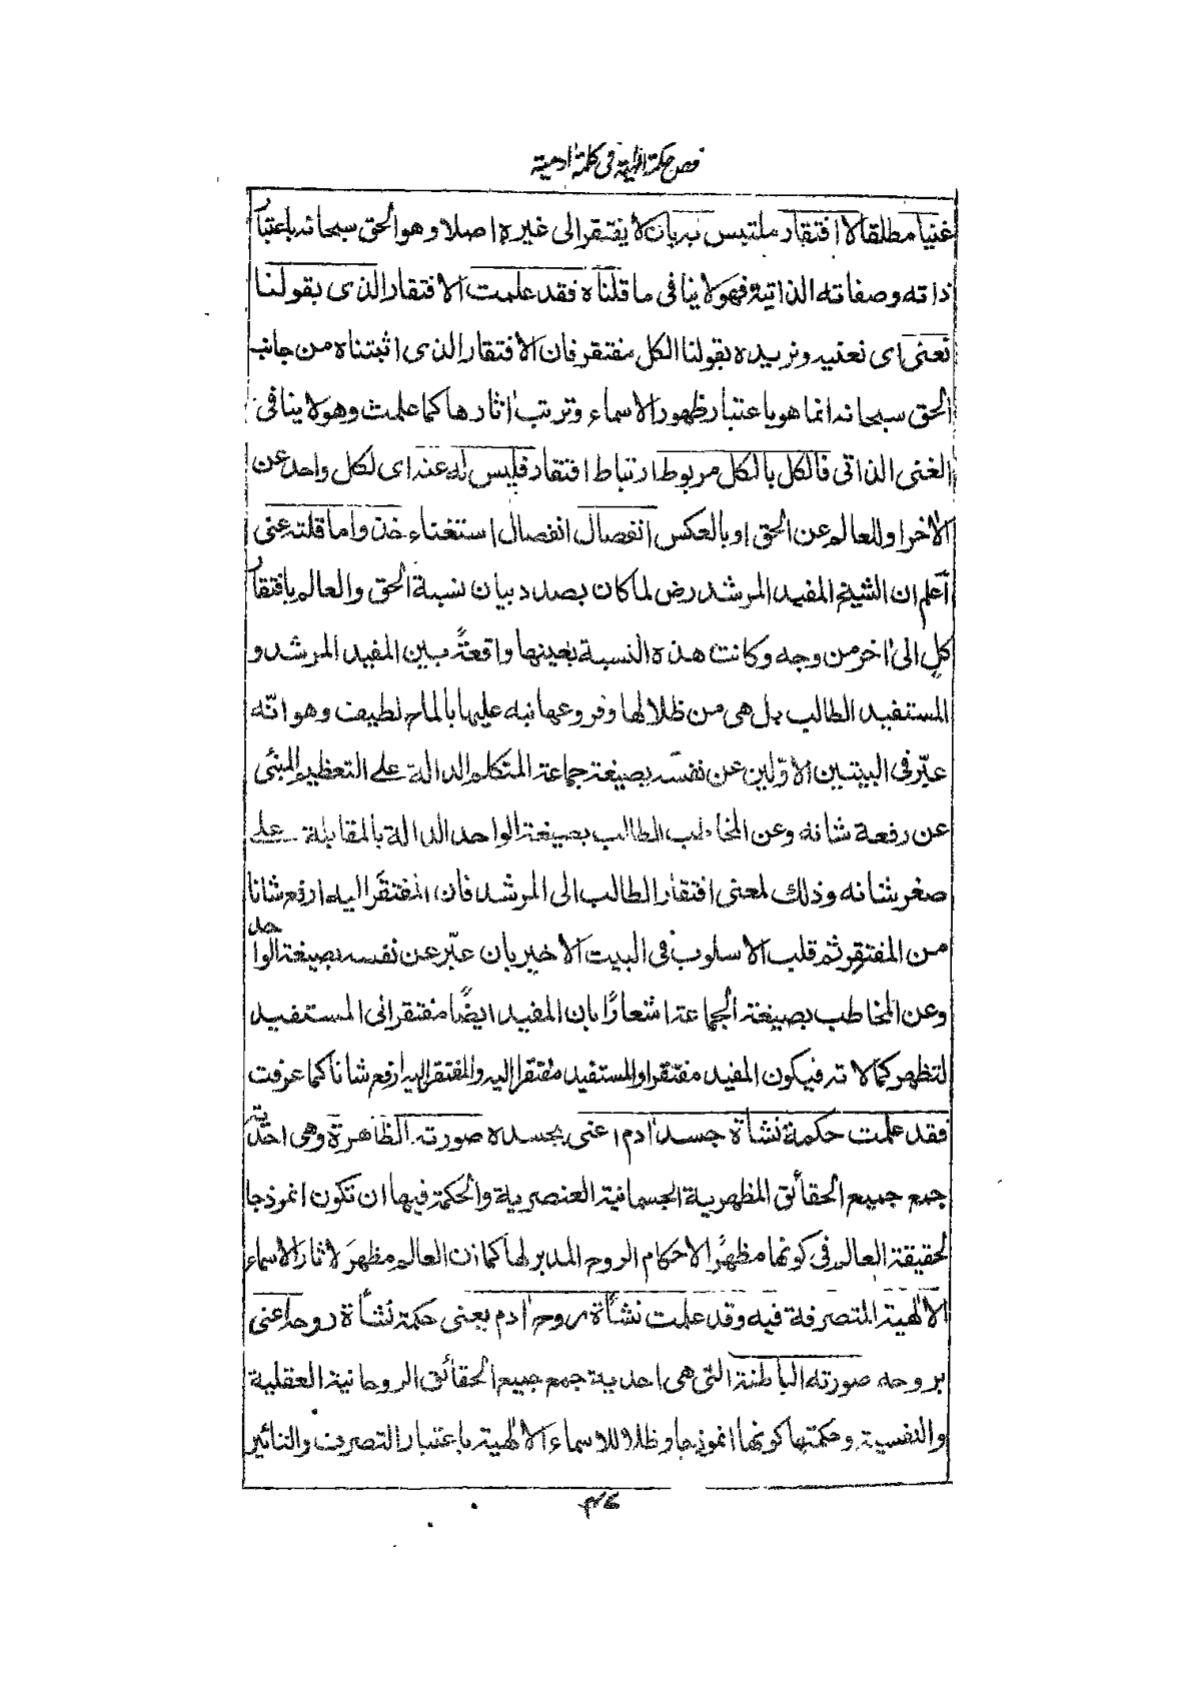 فص حكمة الهية في كلمة ادمية
غنيا مطلقا لا افتقار ملتبس به بان لا يفتقر الى غيره اصلا وهو الحق سبحانه باعتبار
ذاته وصفاته الذاتية فهو لا ينافى ما قلناه فقد علمت الافتقار الذى بقولنا
نعنى اى نعنيه ونريده بقولنا الكل مفتقر فان الافتقار الذى اثبتناه من جانب
الحق سبحانه انما هو باعتبار ظهور الاسماء وترتب اثارها كما علمت وهو لا ينافى
الغنى الذاتى فالكل بالكل مربوط ارتباط افتقار فليس له عنه اى لكل واحد عن
الاخر او للعالم عن الحق او بالعكس انفصال انفصال استغناء خذوا ما قلته عنى
آعلم ان الشيخ المفيد المرشد رض لما كان بصدد بيان نسبة الحق والعالم بافتقار
كلٍ الى اخر من وجه وكانت هذه النسبة بعينها واقعةً بين المفيد المرشد و
المستفيد الطالب بل هى من ظلالها وفروعها نبه عليها بالماح لطيف وهو انّه
عبّر فى البيتين الاوّلين عن نفسه بصيغة جماعة المتكلم الدالة على التعظيم المبنئ
عن رفعة شانه وعن المخاطب الطالب بصيغة الواحد الدالة بالمقابلة على
صغر شانه وذلك لمعنى افتقار الطالب الى المرشد فان المفتقَر اليه ارفع شانا
من المفتقِر ثم قلب الاسلوب فى البيت الاخير بان عبّر عن نفسه بصيغة الواحد
وعن المخاطب بصيغة الجماعة اشعارًا بان المفيد ايضًا مفتقر الى المستفيد
لتظهر كمالاته فيكون المفيد مفتقرا والمستفيد مفتقرا اليه والمفتقر اليه ارفع شانا كما عرفت
فقد علمت حكمة نشأة جسد ادم اعنى بجسده صورته الظاهرة وهى احدية
جمع جميع الحقائق المظهرية الجسمانية العنصرية والحكمة فيها ان تكون انموذجا
لحقيقة العالم فى كونها مظهرًا لاحكام الروح المدبر لها كما ان العالم مظهرَ لاثار الاسماء
الالهية المتصرفة فيه وقد علمت نشأة روح ادم يعنى حكمة نشأة روحه اعنى
بروحه صورته الباطنة التى هى احدية جمع جميع الحقائق الروحانية العقلية
والنفسية وحكمتها كونها انموذجا وظلا للاسماء الالهية باعتبار التصرف والتاثير